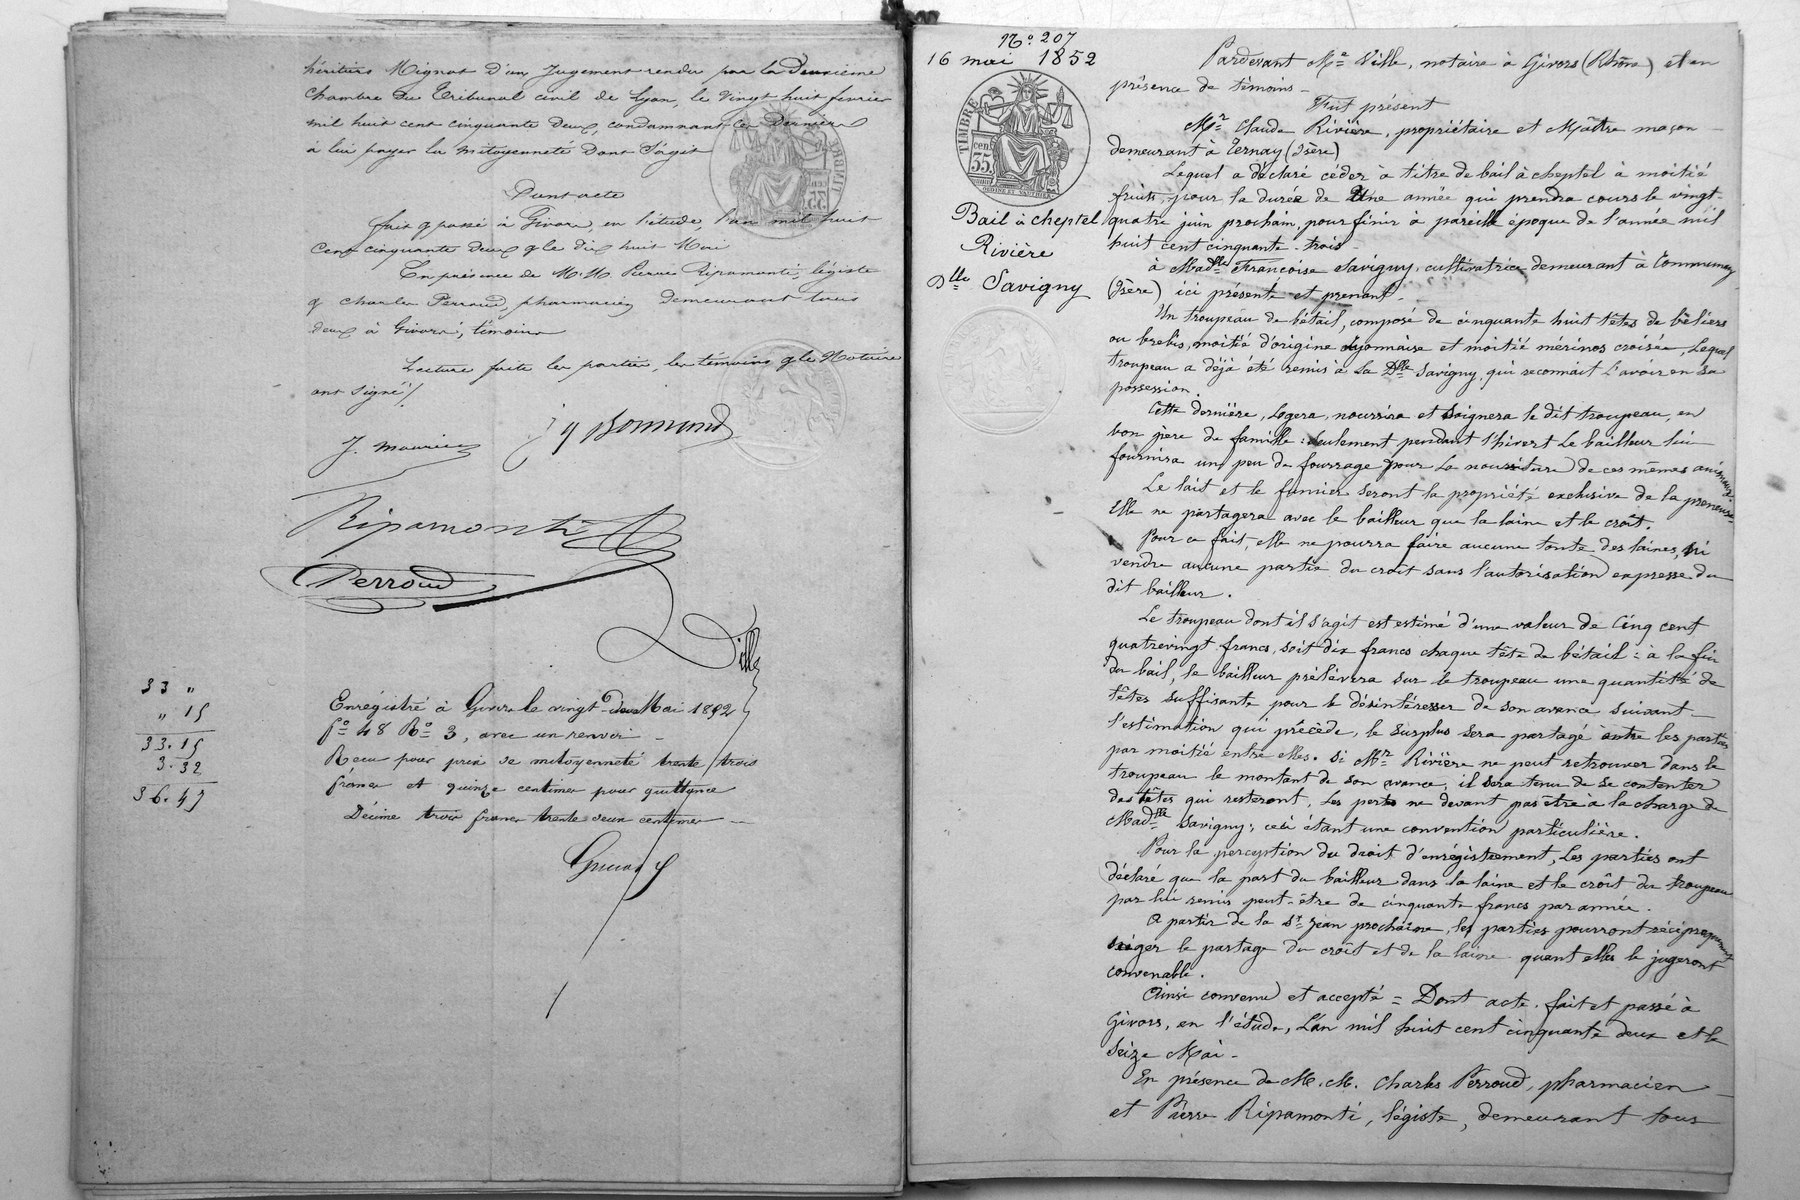 héritiers Mignot d'un Jugement rendu par la Deuxième
chambre du Tribunal civil de Lyon, le vingt huit fevrier
mil huit cent cinquante deux, condamnant ces derniers
à lui payer la mitoyenneté dont s'agit
Dont acte
fait & passé à Givors, en l'étude, l'an mil huit
cent cinquante deux & le dix huit Mai
En présence de M.M. Pierre Ripamonti, légiste
& charles Perroud, pharmacien demeurant tous
deux à Givors, témoins
Lecture faite les parties, les témoins & le Notaire
ont signé /
J. Maurice
Bonnand
Ripamonti
Perroud
Ville
33 "
" 15
33.15
3.32
36.47
Enrégistré à Givors le vingt Mai 1852
fo 48 Ro 3, avec un renvoi
Reçu pour prix de mitoyenneté trente trois
francs et quinze centimes pour quittance
Décime trois francs trente deux centimes
No 207
16 mai 1852
TIMBRE
35 cen
Bail à cheptel
Rivière
Dlle Savigny
Pardevant Me Ville, notaire à Givors (Rhône) et en
présence de témoins
Fut présent
Mr Claude Rivière, propriétaire et Maître maçon
demeurant à Ternay (Isère)
Lequel a déclaré céder à titre de bail à cheptel à moitié
fruits, pour la durée de Une année qui prendra cours le vingt-
quatre juin prochain, pour finir à pareille époque de l'année mil
huit cent cinquante-trois
à Madlle Françoise Savigny, cultivatrice demeurant à Communay
(Isère) ici présente et prenant.
Un troupeau de bétail, composé de cinquante huit têtes de béliers
ou brebis, moitié d'origine Lyonnaise et moitié mérinos croisée, Lequel
troupeau a déjà été remis à La Dlle Savigny, qui reconnait l'avoir en sa
possession.
Cette dernière, Logera, nourrira et soignera le dit troupeau, en
bon père de famille: seulement pendant l'hivert Le bailleur lui
fournira un peu de fourrage pour La nourriture de ces mêmes animaux.
Le lait et le fumier seront la propriété exclusive de la preneuse.
Elle ne partagera avec le bailleur que la laine et le croît.
Pour ce fait, elle ne pourra faire aucune tonte des laines, ni
vendre aucune partie du croît sans l'autorisation expresse du
dit bailleur.
Le troupeau dont il s'agit est estimé d'une valeur de Cinq cent
quatrevingt francs, soit dix francs chaque tête de bétail: à la fin
du bail, le bailleur prélèvera sur le troupeau une quantité de
têtes suffisante pour le désintéresser de son avance suivant
l'estimation qui précède, le surplus sera partagé entre les parties
par moitié entre elles. Si Mr Rivière ne peut retrouver dans le
troupeau le montant de son avance, il sera tenu de se contenter
des têtes qui resteront, Les perts ne devant pas être à la charge de
Madlle Savigny; ceci étant une convention particulière.
Pour la perception du droit d'enrégistrement, Les parties ont
déclaré que la part du bailleur dans la laine et le croît du troupeau
par lui remis peut-être de cinquante francs par année.
A partir de la St Jean prochaine, les parties pourront réciproquement
exiger le partage du croît et de la laine quant elles le jugeront
convenable.
Ainsi convenu et accepté = Dont acte. fait et passé à
Givors, en l'étude, L'an mil huit cent cinquante deux et le
Seize Mai
En présence de M.M. Charles Perroud, pharmacien
et Pierre Ripamonti, légiste, demeurant tous